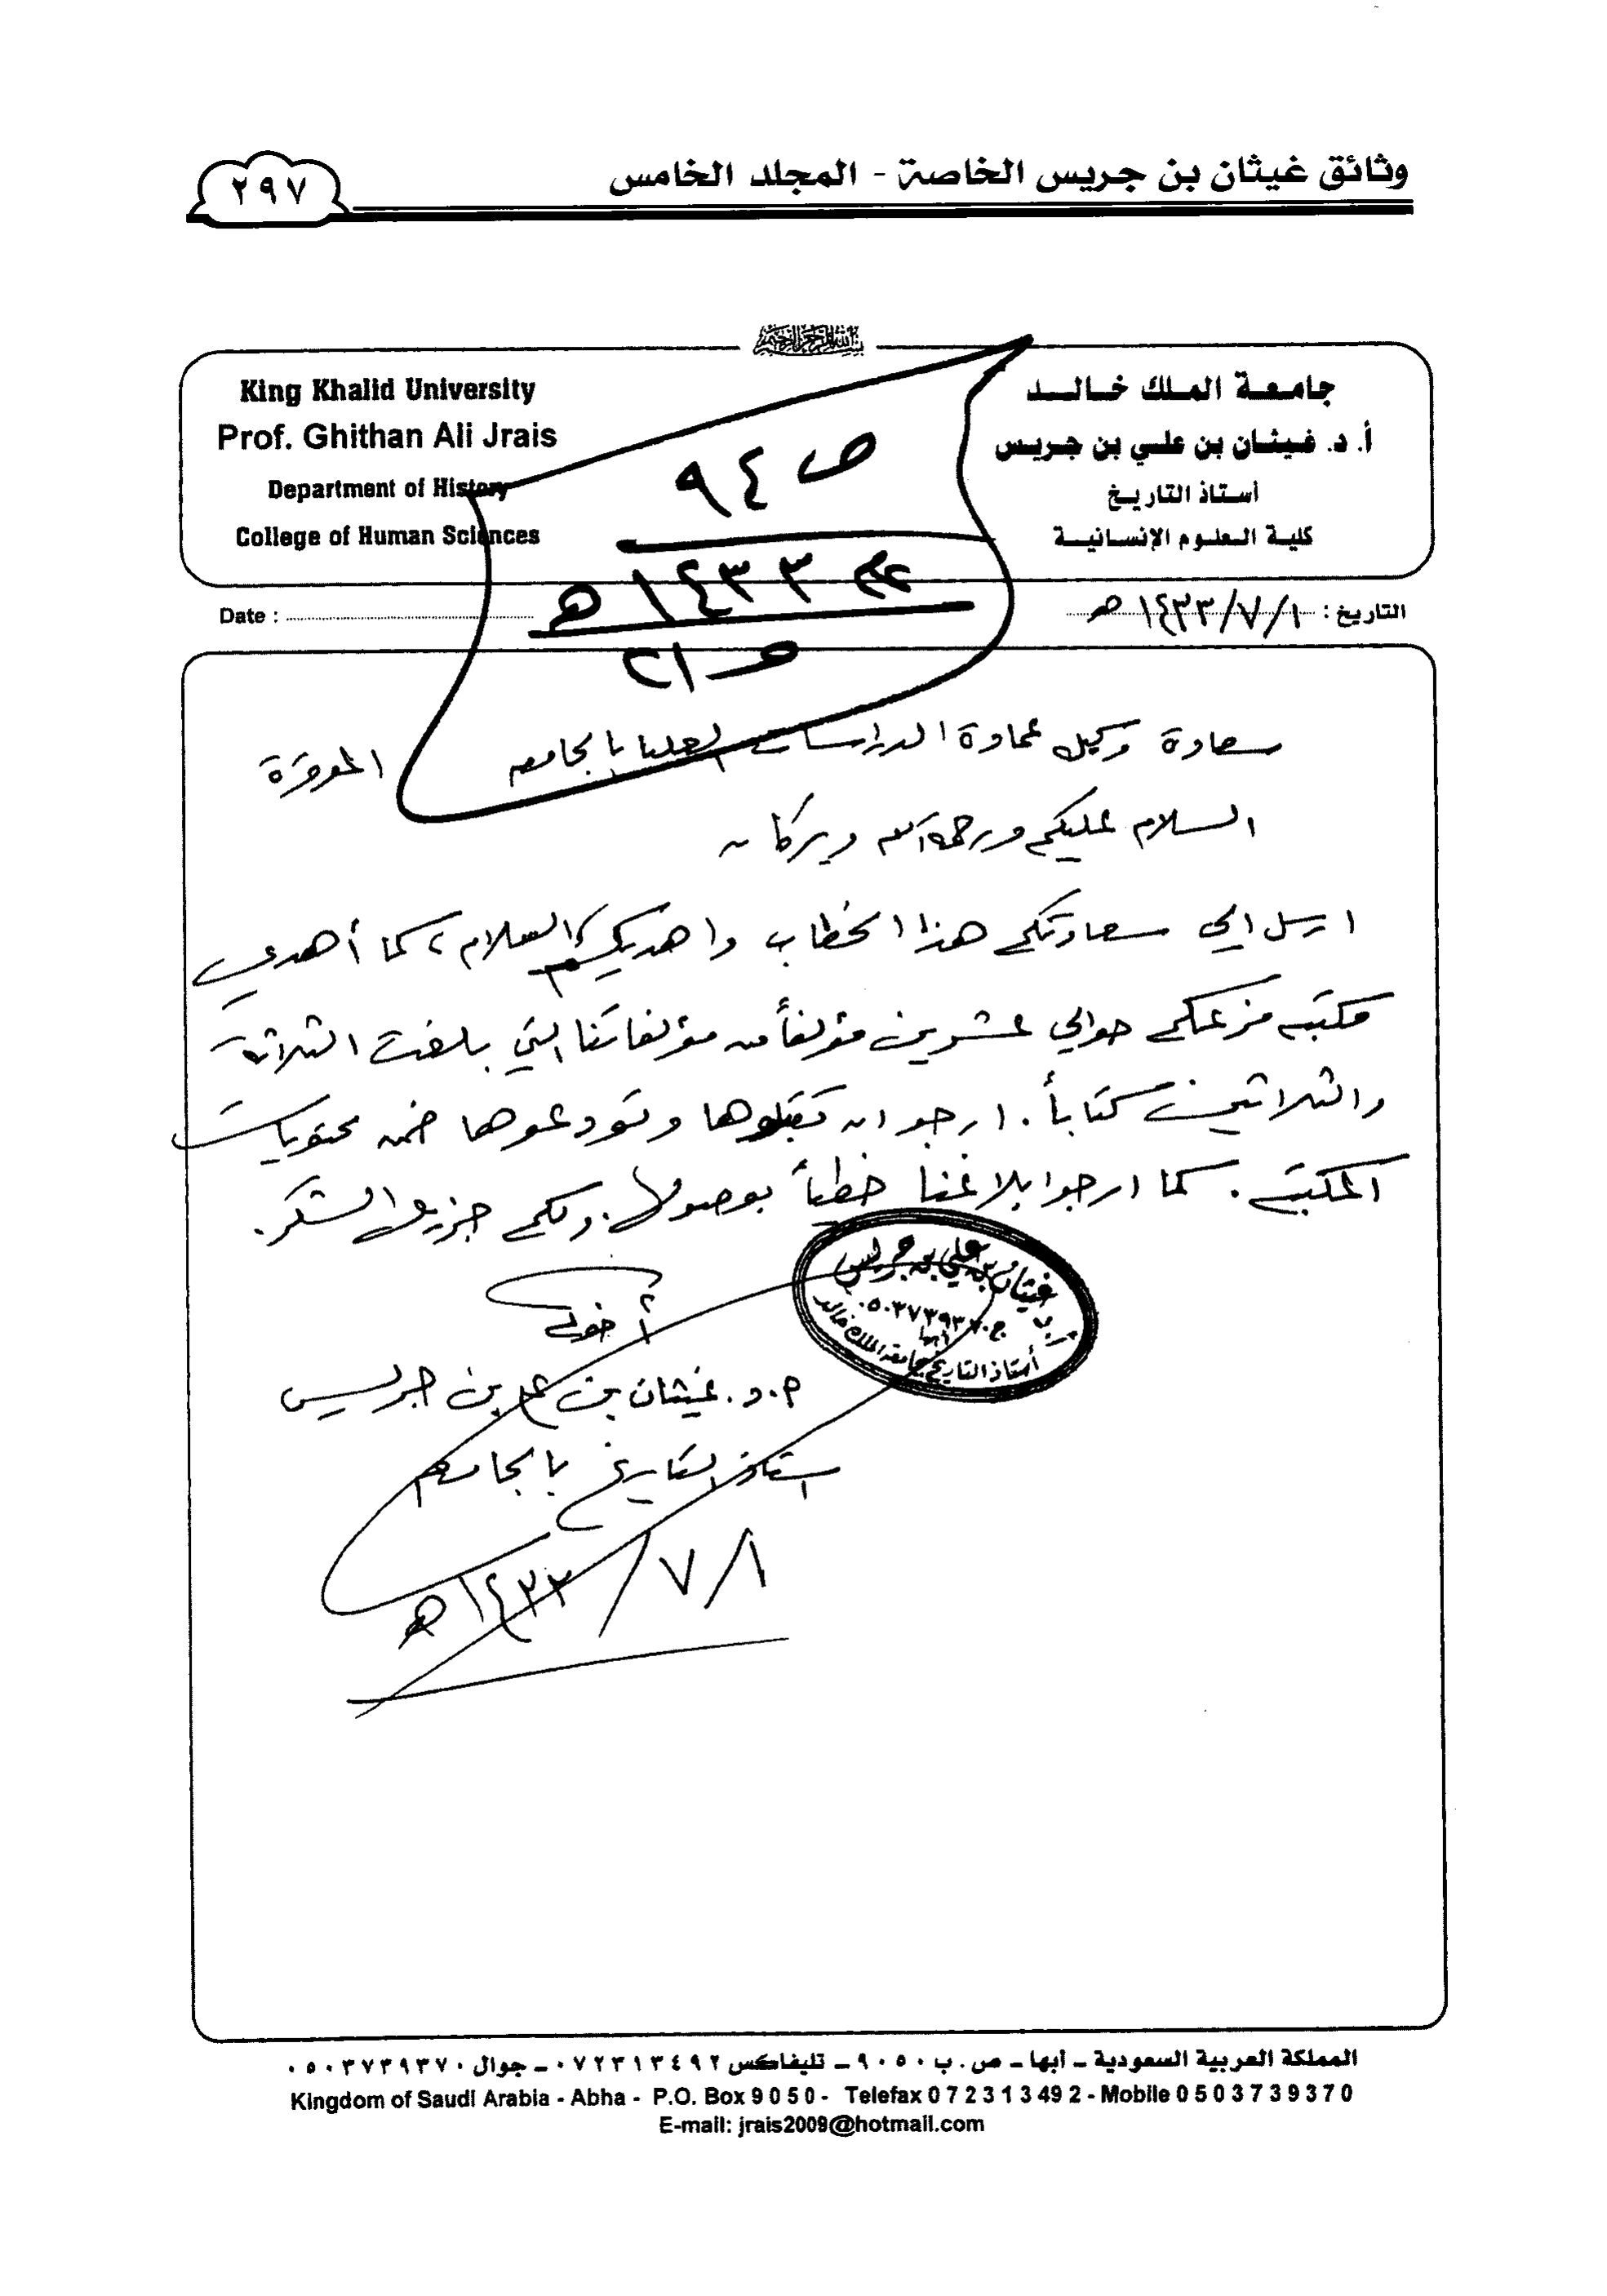 وثائق غيثان بن جريس الخاصة - المجلد الخامس
٢٩٧
جامعة الملك خالد
أ. د. غيثان بن علي بن جريس
أستاذ التاريخ
كلية العلوم الإنسانية
King Khalid University
Prof. Ghithan Ali Jrais
Department of History
College of Human Sciences
ص ٩٤
عام ١٤٣٣هـ
ص ٢١
التاريخ : ١/٧/١٤٣٣هـ
Date :
سعادة وكيل عمادة الدراسات العليا بالجامعة الموقرة
السلام عليكم ورحمة الله وبركاته
ارسل الى سعادتكم هذا الخطاب واهديكم السلام، كما أهدي
مكتبة فرعكم حوالي عشرين مؤلفاً من مؤلفاتنا التي بلغت الثلاثة
والثلاثين كتاباً. ارجو ان تقبلوها وتودعوها ضمن محتويات
المكتبة. كما ارجوا بلاغنا خطياً بوصولها. ولكم جزيل الشكر.
أخوكم
أ.د. غيثان بن علي بن جريس
استاذ التاريخ بالجامعة
١/٧/١٤٣٣هـ
غيثان بن علي بن جريس
ج ٠٥٠٣٧٣٩٣٧٠
أبها
أستاذ التاريخ بجامعة الملك خالد
المملكة العربية السعودية - أبها - ص. ب ٩٠٥٠ - تليفاكس ٠٧٢٣١٣٤٩٢ - جوال ٠٥٠٣٧٣٩٣٧٠
Kingdom of Saudi Arabia - Abha - P.O. Box 9050 - Telefax 072313492 - Mobile 0503739370
E-mail: jrais2009@hotmail.com